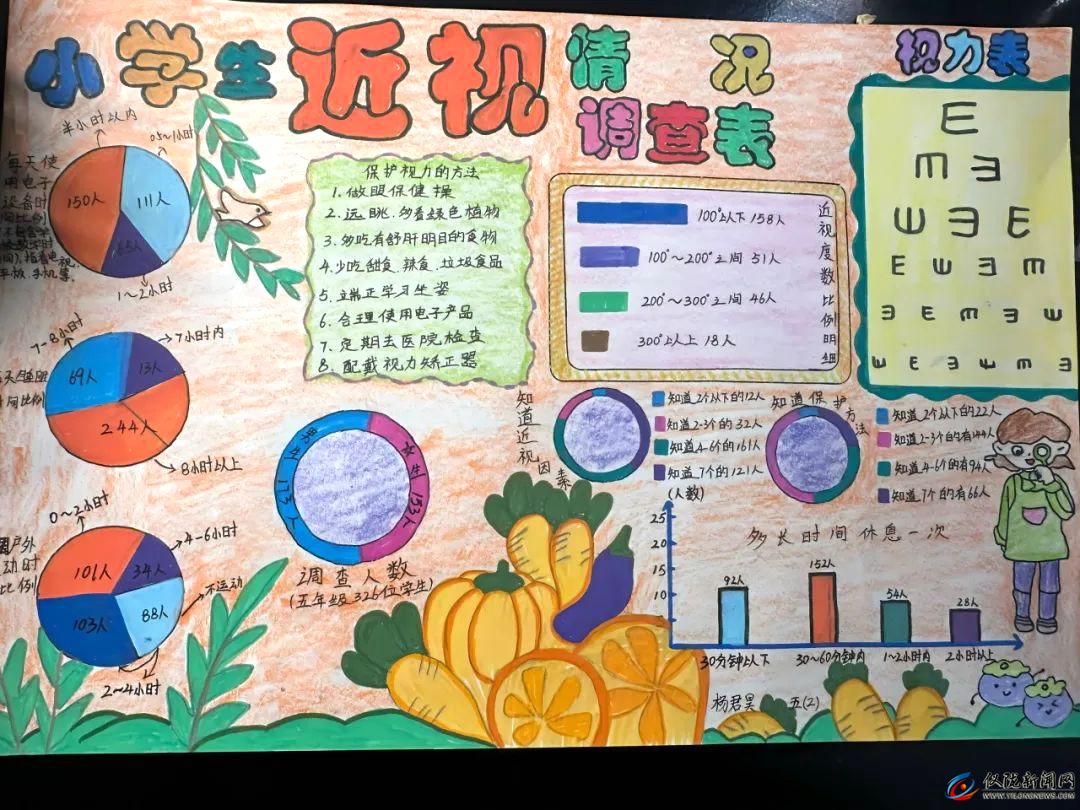 小学生近视情况调查表
视力表
半小时以内
0.5~1小时
150人
111人
65人
1~2小时
每天使
用电子
设备时
间比例
7~8小时
7小时内
69人
13人
244人
8小时以上
0~2小时
4-6小时
101人
34人
不运动
103人
88人
2~4小时
保护视力的方法
1.做眼保健操
2.远眺,多看绿色植物
3.多吃有舒肝明目的食物
4.少吃甜食、辣食、垃圾食品
5.立端正学习生姿
6.合理使用电子产品
7.定期去医院检查
8.配戴视力矫正器
100°以下 158人
100°~200°之间 51人
200°~300°之间 46人
300°以上 18人
近视度数比例明细
E
M E
W E E
E W E M
E E M E W
W E E W M E
男生173人
女生153人
调查人数
(五年级326位学生)
知道近视因素
知道2个以下的12人
知道2-3个的32人
知道4-6个的161人
知道7个的121人
(人数)
知道保护方法
知道2个以下的22人
知道2-3个的有144人
知道4-6个的有94人
知道7个的有66人
多长时间休息一次
25
20
15
10
92人
152人
54人
28人
30分钟以下
30~60分钟内
1~2小时内
2小时以上
杨君昊 五(2)
仪陇新闻网
WWW.YILONGNEWS.COM